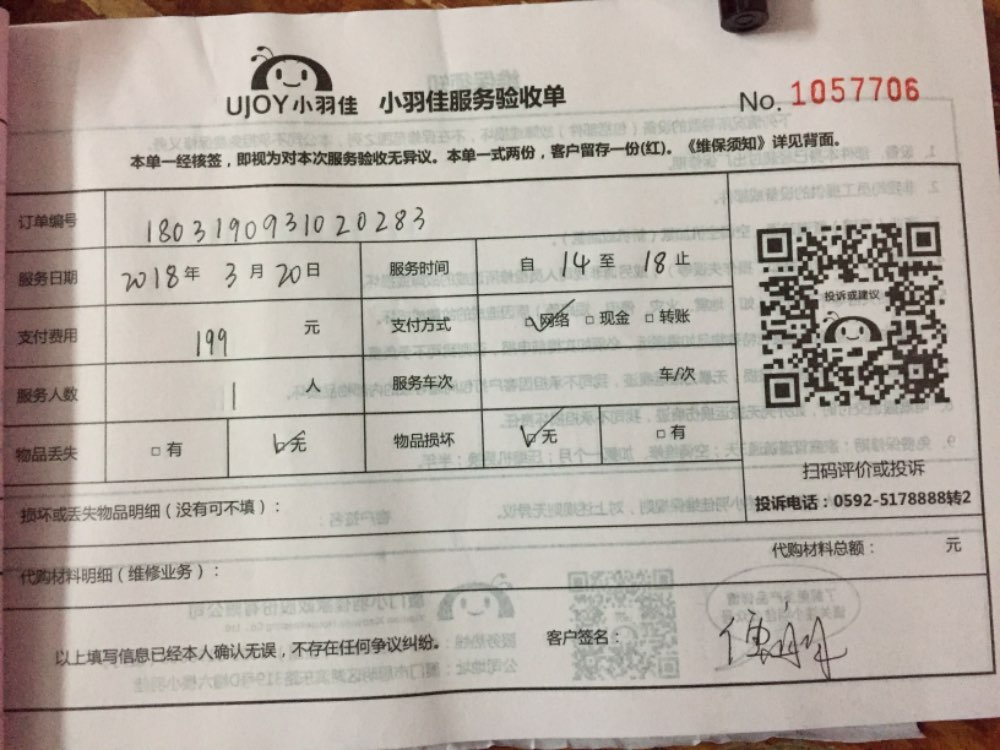 UJOY小羽佳 小羽佳服务验收单 No. 1057706
本单一经核签，即视为对本次服务验收无异议。本单一式两份，客户留存一份(红)。《维保须知》详见背面。
订单编号 1803190931020283
服务日期 2018年 3月20日 服务时间 自 14 至 18 止
支付费用 199 元 支付方式 ☑网络 □现金 □转账
服务人数 1 人 服务车次 车/次
物品丢失 □有 ☑无 物品损坏 ☑无 □有
投诉或建议
扫码评价或投诉
投诉电话：0592-5178888转2
损坏或丢失物品明细（没有可不填）：
代购材料总额： 元
代购材料明细（维修业务）：
以上填写信息已经本人确认无误，不存在任何争议纠纷。 客户签名：